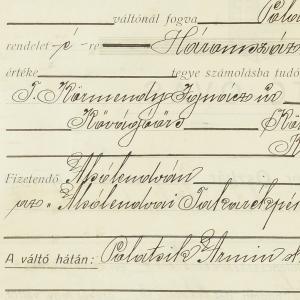 váltónál fogva Pola
rendelet -é- re Háromszáz
értéke tegye számolásba tudó
T. Körmendy Ignácz úr
Kővágóőrs Kő
Fizetendő Alsólendván
az "Alsólendvai Takarékpén
A váltó hátán: Polatsik Ármin s